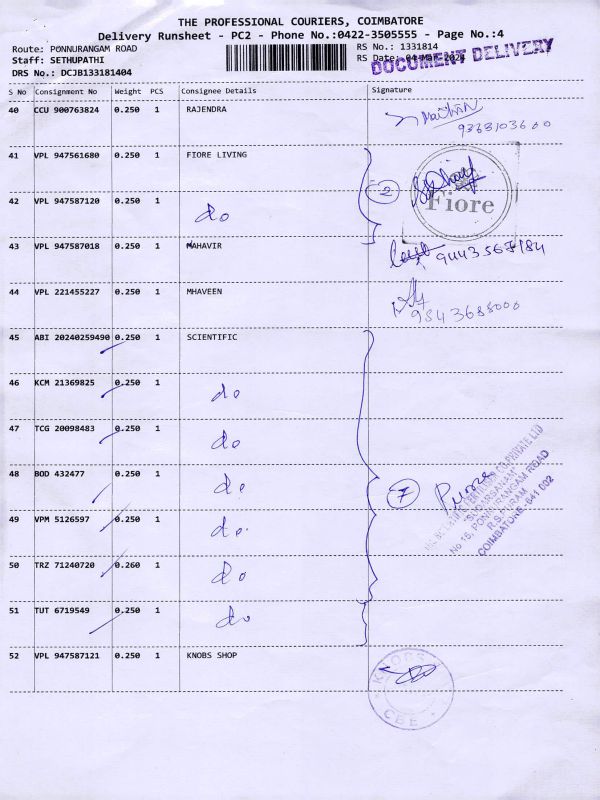 THE PROFESSIONAL COURIERS, COIMBATORE
Delivery Runsheet - PC2 - Phone No.:0422-3505555 - Page No.:4
Route: PONNURANGAM ROAD
Staff: SETHUPATHI
DRS No.: DCJB133181404
RS No.: 1331814
RS Date: 04-Mar-2024
DOCUMENT DELIVERY
S No Consignment No Weight PCS Consignee Details Signature
40 CCU 900763824 0.250 1 RAJENDRA
41 VPL 947561680 0.250 1 FIORE LIVING
2
Fiore
42 VPL 947587120 0.250 1 do
43 VPL 947587018 0.250 1 MAHAVIR
9443567184
44 VPL 221455227 0.250 1 MHAVEEN
9843688000
45 ABI 20240259490 0.250 1 SCIENTIFIC
46 KCM 21369825 0.250 1 do
47 TCG 20098483 0.250 1 do
48 BOD 432477 0.250 1 do
7
49 VPM 5126597 0.250 1 do
50 TRZ 71240720 0.260 1 do
51 TUT 6719549 0.250 1 do
CO.PRIVATE LTD
"SUDARSANAM"
No 15, PONNURANGAM ROAD
R.S. PURAM
COIMBATORE - 641 002
52 VPL 947587121 0.250 1 KNOBS SHOP
KNOBS
CBE